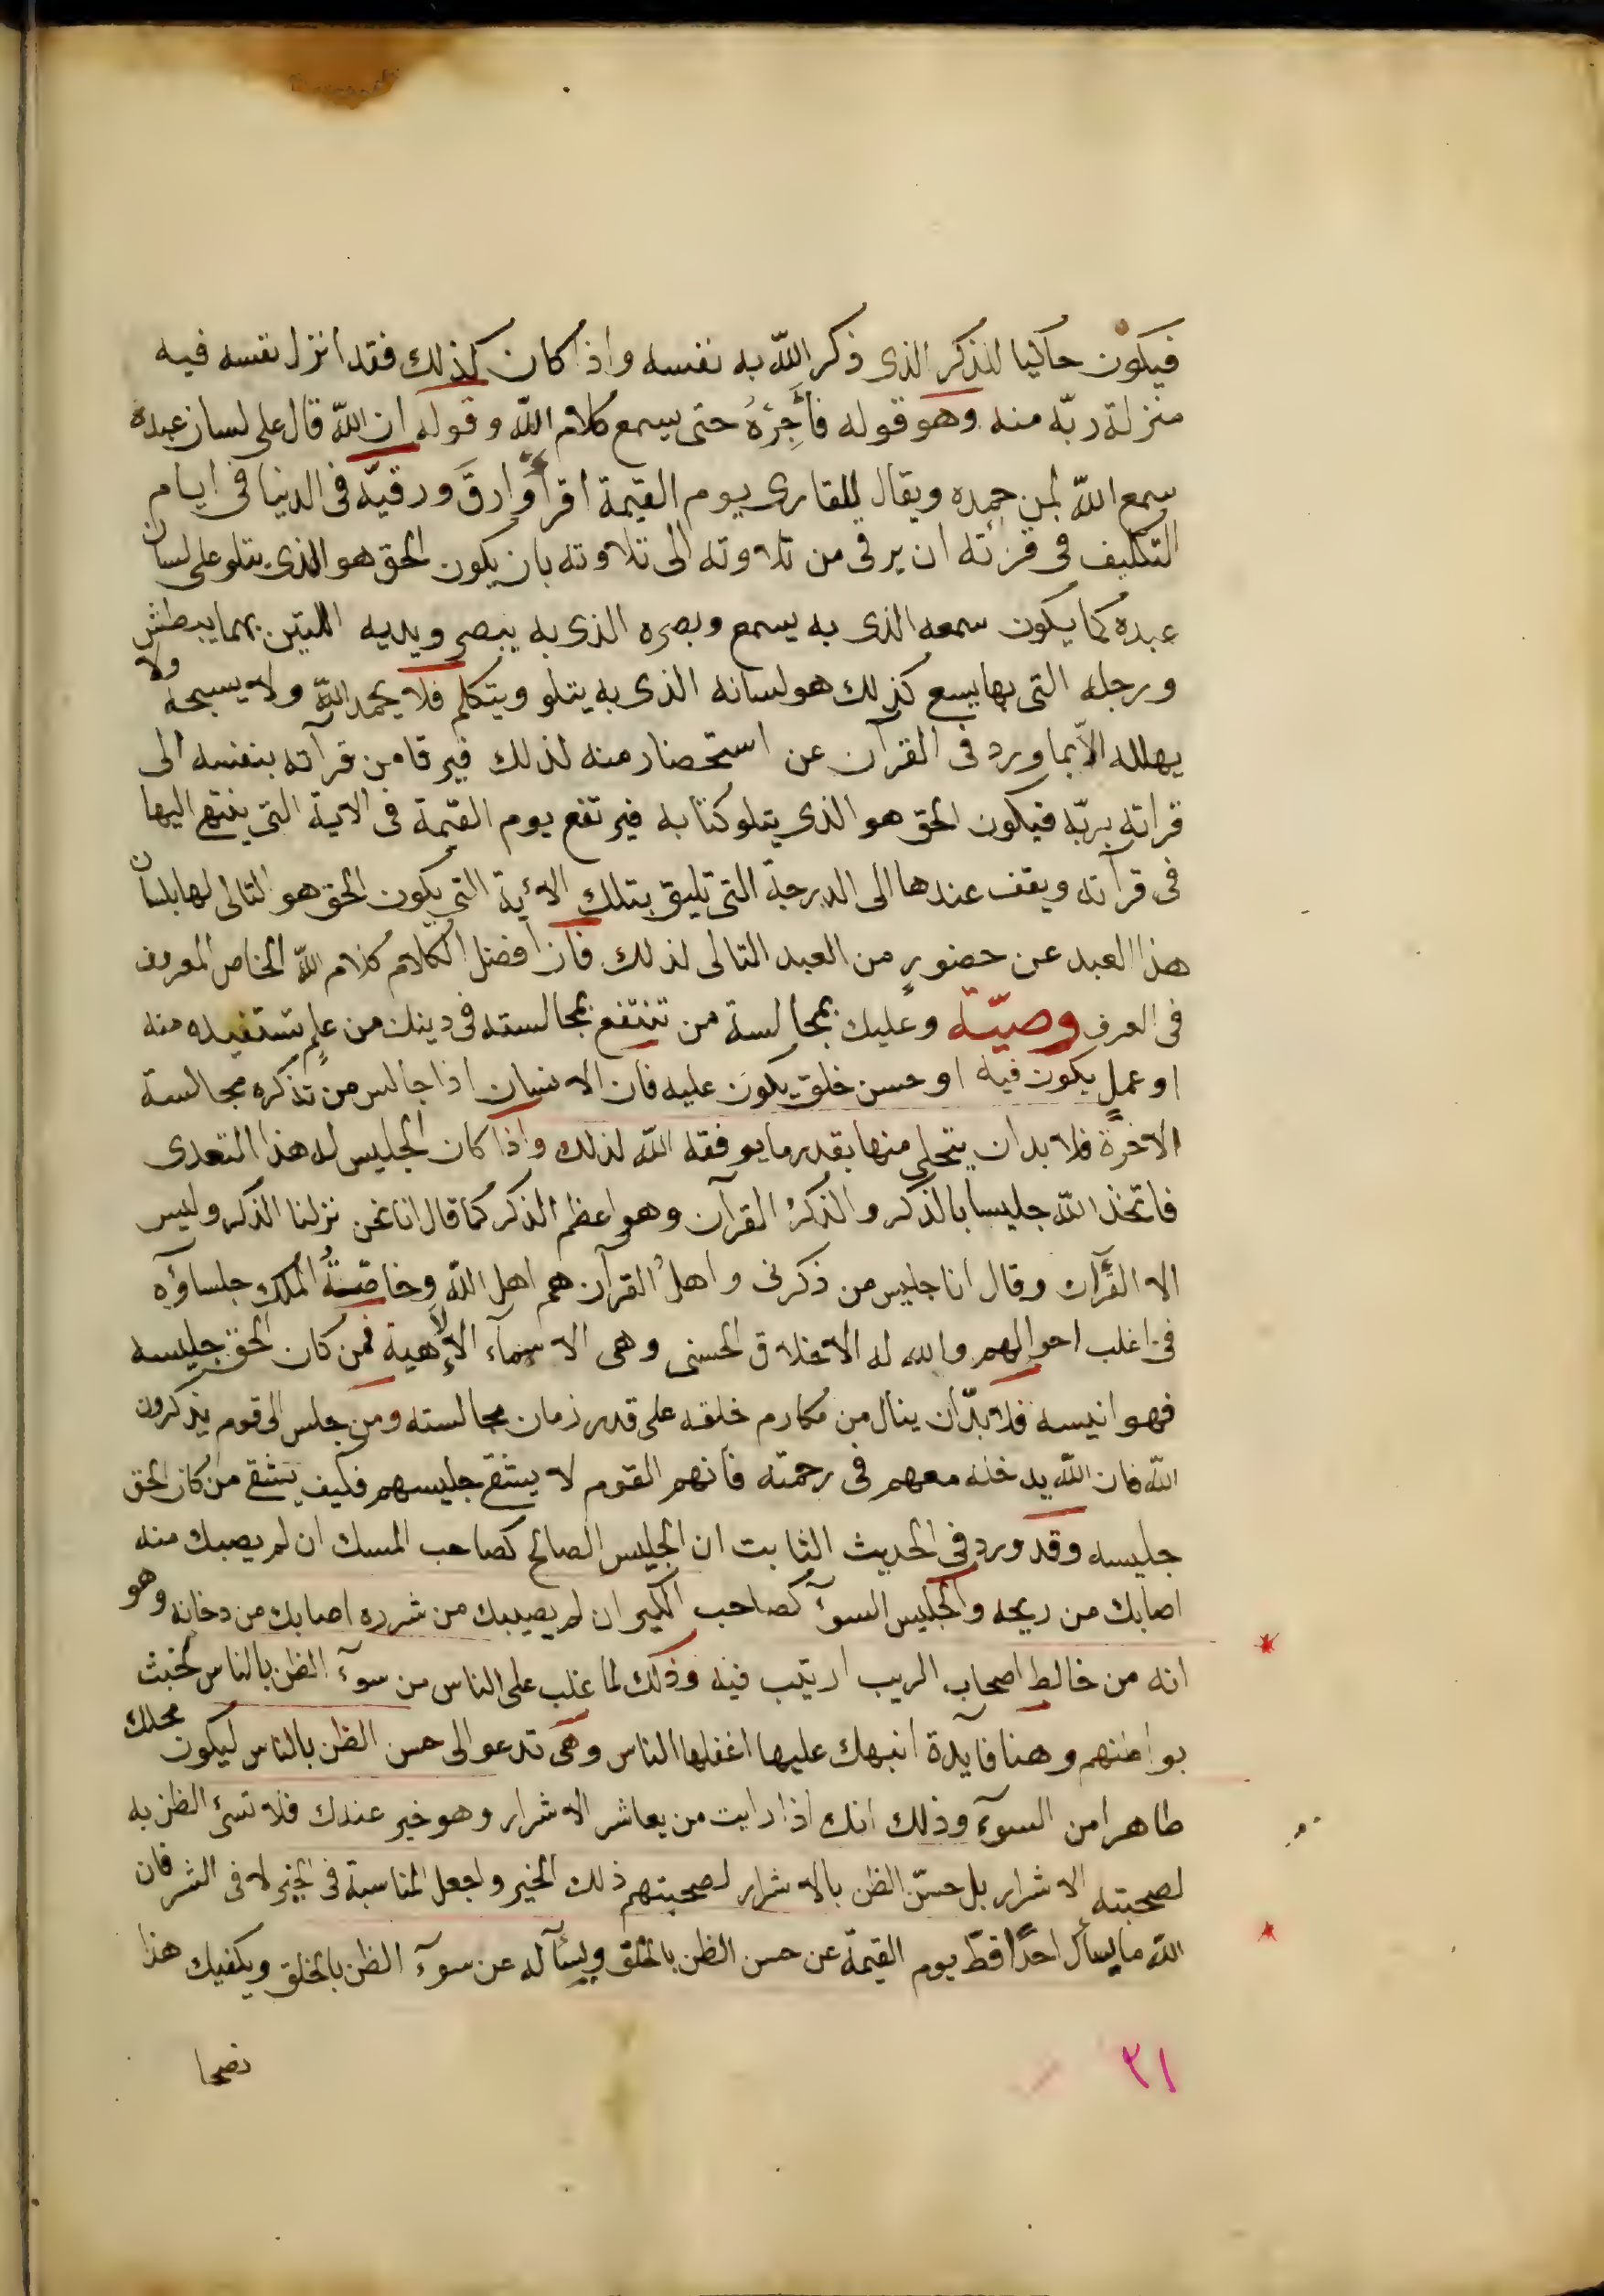 فيكون حاكيا للذكر الذى ذكر الله به نفسه واذا كان كذلك فقد انزل نفسه فيه
منزلة ربّه منه وهو قوله فأَجِرْهُ حتى يسمع كلام الله و قوله ان الله قال على لسان عبده
سمع الله لمن حمده ويقال للقارى يوم القيمة اقرأ وارقَ ورقيّه فى الدنيا فى ايام
التكليف فى قرأته ان يرقى من تلاوته الى تلاوته بان يكون الحق هو الذى يتلو على لسان
عبده كما يكون سمعه الذى به يسمع وبصره الذى به يبصر ويديه اللتين بهما يبطش
ورجله التى بها يسع كذلك هو لسانه الذى به يتلو ويتكلم فلا يحمد الله ولا يسبحه ولا
يهلله الاّ بما ورد فى القرآن عن استحضار منه لذلك فيرقا من قرآته بنفسه الى
قراته بربّه فيكون الحق هو الذى يتلو كتابه فيرتفع يوم القيمة فى الاية التى ينتهى اليها
فى قرآته ويقف عندها الى الدرجة التى تليق بتلك الاية التى يكون الحق هو التالى لها بلسان
هذا العبد عن حضورٍ من العبد التالى لذلك فان افضل الكلام كلام الله الخاص المعروف
فى العرف وصيّة وعليك بمجالسة من تنتفع بمجالسته فى دينك من علمٍ تستفيده منه
او عملٍ يكون فيه او حسن خلق يكون عليه فان الانسان اذا جالس من تذكره مجالسة
الاخرة فلا بد ان يتحلى منها بقدر ما يوفقه الله لذلك واذا كان الجليس له هذا التعدى
فاتخذ الله جليسا بالذكر والذكرُ القرآن وهو اعظم الذكر كما قال انا نحن نزلنا الذكر وليس
الا القرآن وقال انا جليس من ذكرنى واهلُ القرآن هم اهل الله وخاصّتهُ الملك جلساؤه
فى اغلب احوالهم والله له الاخلاق الحسنى وهى الاسماء الالهية فمن كان الحق جليسه
فهو انيسه فلا بدّ ان ينال من مكارم خلقه على قدر زمان مجالسته ومن جلس الى قوم يذكرون
الله فان الله يدخله معهم فى رحمته فانهم القوم لا يشقى جليسهم فكيف يشقى من كان الحق
جليسه وقد ورد فى الحديث الثابت ان الجليس الصالح كصاحب المسك ان لم يصبك منه
اصابك من ريحه والجليس السوء كصاحب الكير ان لم يصيبك من شرره اصابك من دخانه وهو
انه من خالط اصحاب الريب ارتيب فيه وذلك لما غلب على الناس من سوء الظن بالناس لخبث
بواطنهم وهنا فايدة انبهك عليها اغفلها الناس وهى تدعو الى حسن الظن بالناس ليكون محلك
طاهرا من السوء وذلك انك اذا رايت من يعاشر الاشرار وهو خير عندك فلا تسئ الظن به
لصحبته الاشرار بل حسّن الظن بالاشرار لصحبتهم ذلك الخير واجعل المناسبة فى الخير لا فى الشر فان
الله ما يسأل احدًا قطّ يوم القيمة عن حسن الظن بالخلق ويسأله عن سوء الظن بالخلق ويكفيك هذا
نصحا
٢١